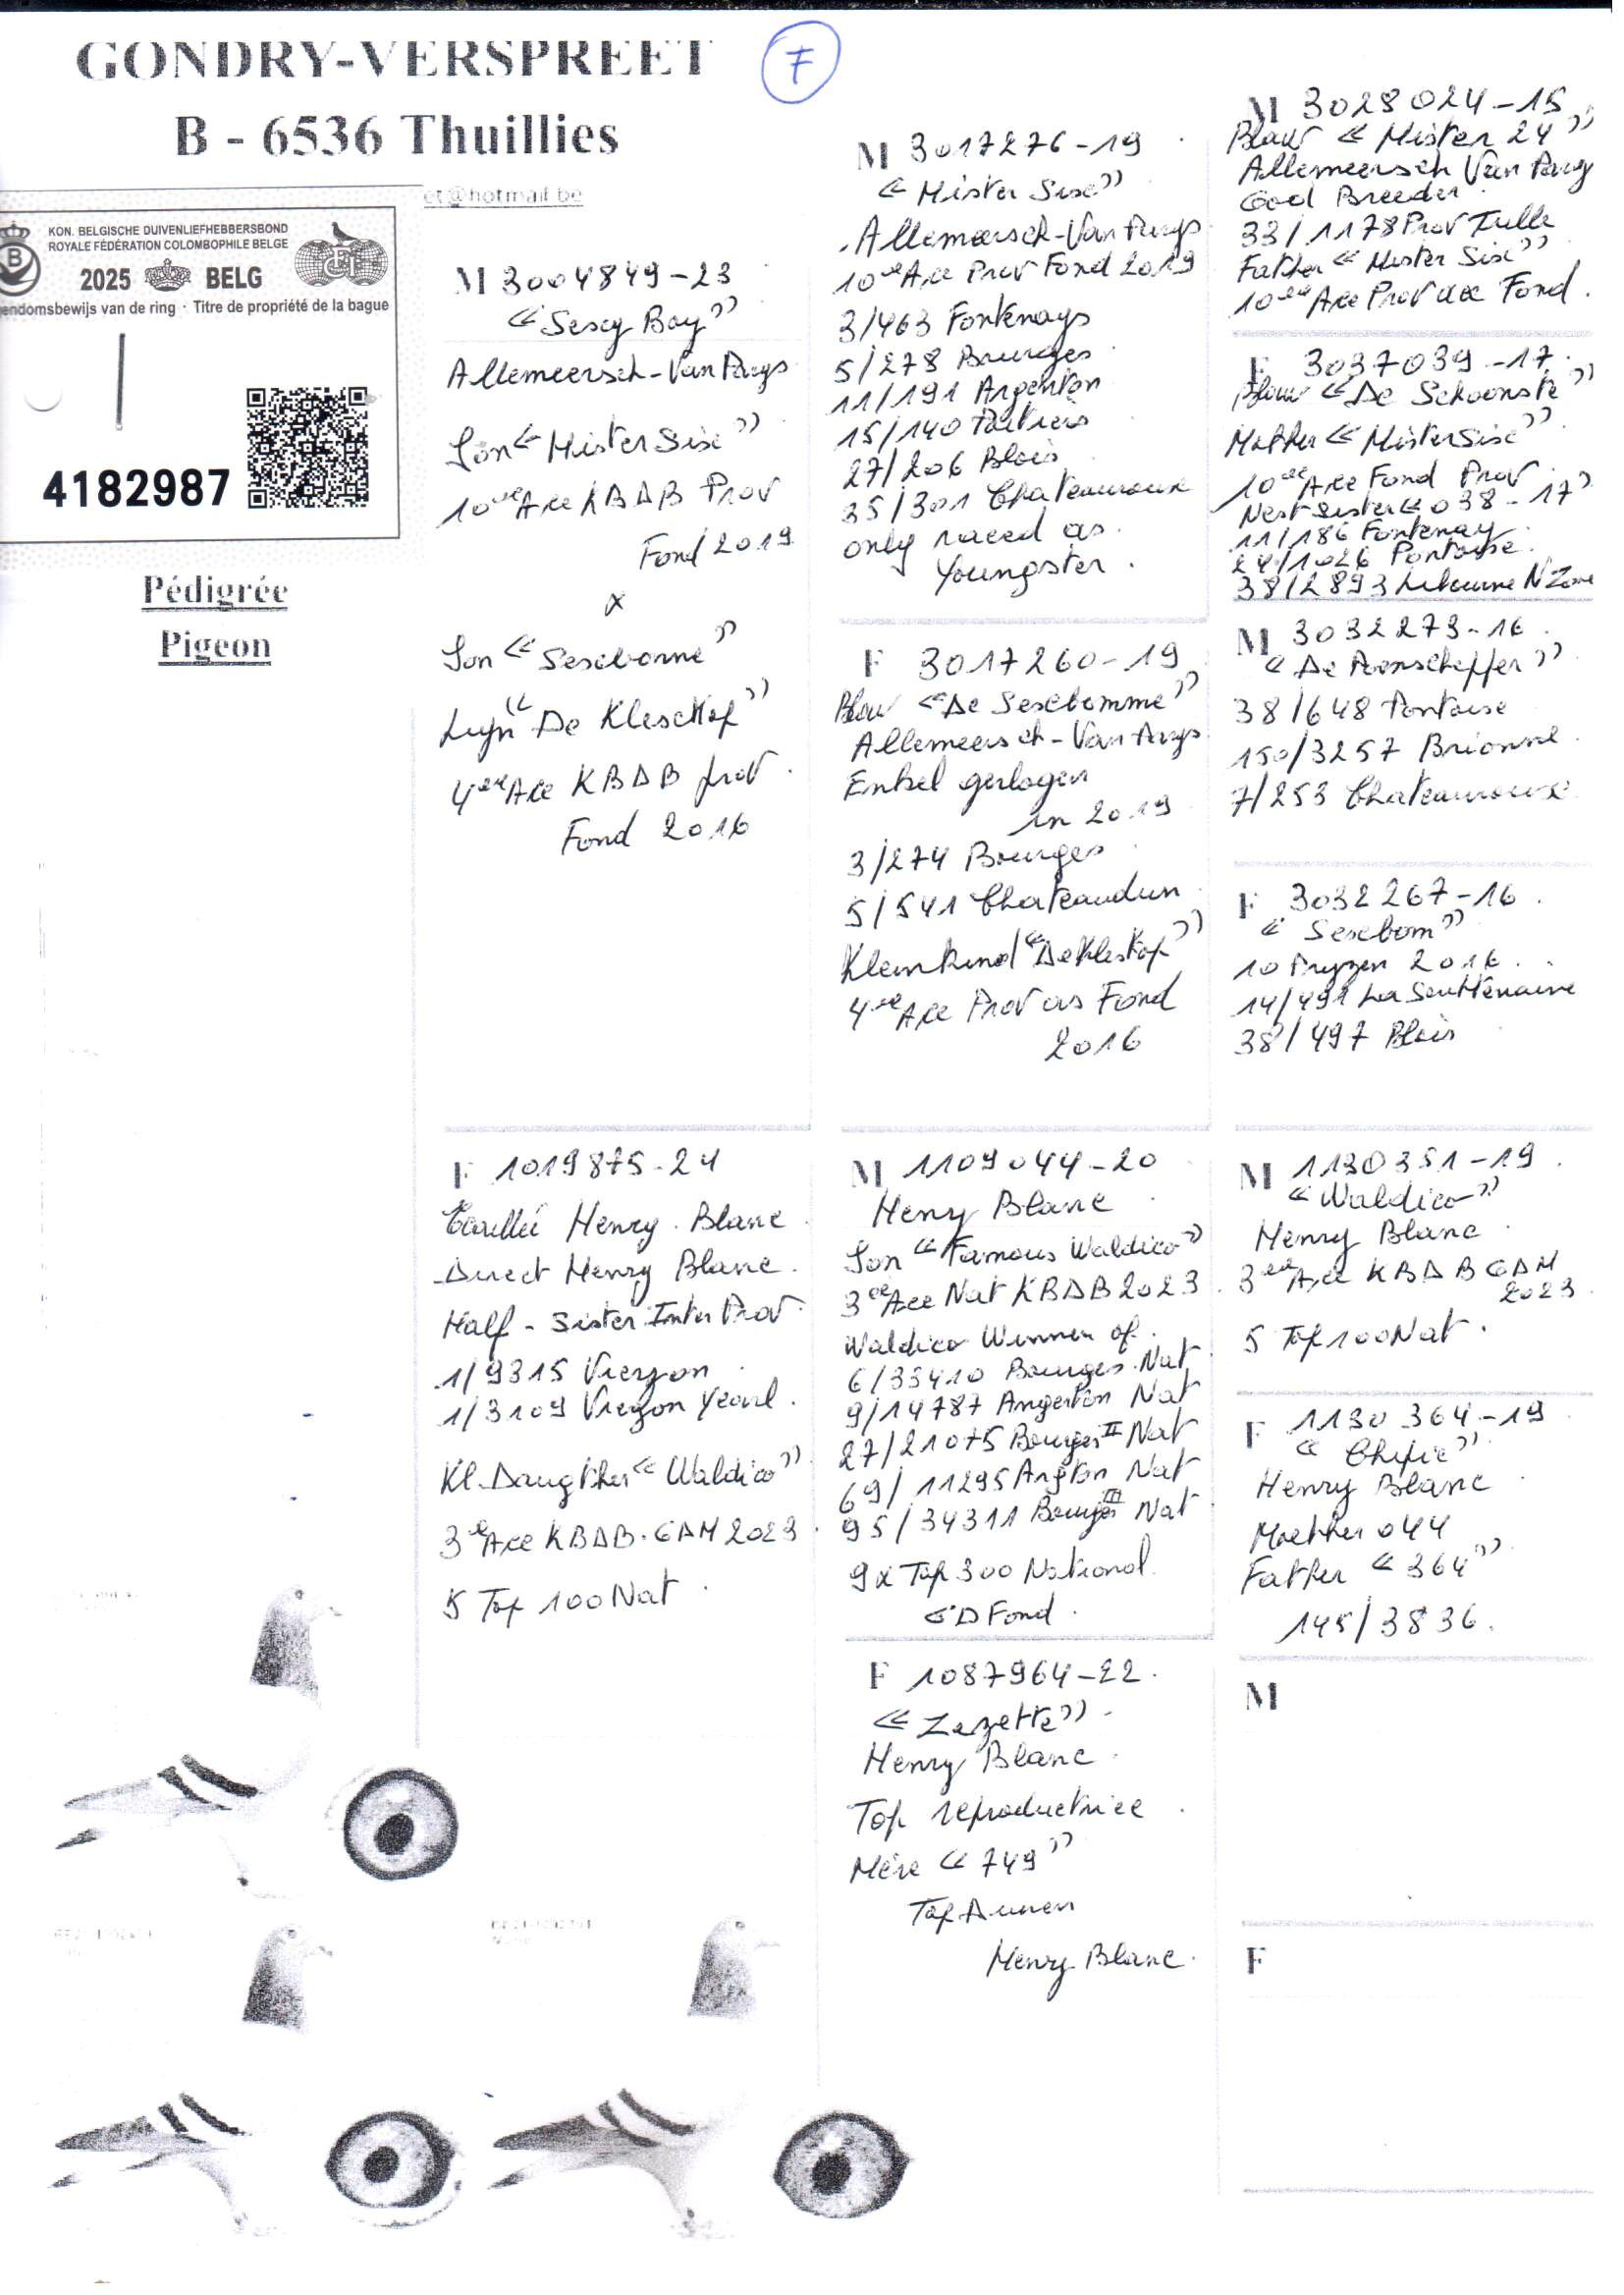 GONDRY-VERSPREET
7
B - 6536 Thuillies
et@hotmail.be
KON. BELGISCHE DUIVENLIEFHEBBERSBOND
ROYALE FÉDÉRATION COLOMBOPHILE BELGE
2025 BELG
endomsbewijs van de ring · Titre de propriété de la bague
4182987
Pédigrée
Pigeon
M 3004849-23
"Sexy Boy"
Allemeersch-Van Parys
Son "Mister Sixe"
10de Ace KBDB Prov
Fond 2019
x
Son "Sexebomme"
Lyn "De Kleschkop"
4de Ace KBDB prov.
Fond 2016
F 1019875-24
Écaillé Henry Blanc
Direct Henry Blanc.
Half-Sister Inter Prov.
1/9315 Vierzon
1/3109 Vierzon Yearl.
Kl.Daugther "Waldico"
3e Ace KBDB.GDM 2023
5 Top 100 Nat.
M 3017276-19
"Mister Sixe"
Allemeersch-Van Parys
10de Ace Prov Fond 2019
3/463 Fontenays
5/278 Bourges
11/191 Argenton
15/140 Poitiers
27/206 Blois
35/301 Chateauroux
only raced as
Youngster.
F 3017260-19
Blauw "De Sexebomme"
Allemeersch-Van Parys
Enkel gevlogen
in 2019
3/274 Bourges
5/541 Chateaudun
Kleinkind "De Kleskop"
4de Ace Prov as Fond
2016
M 1109044-20
Henry Blanc
Son "Famous Waldico"
3ee Ace Nat KBDB 2023
Waldico Winner of.
6/33410 Bourges.Nat
9/14787 Argenton Nat
27/21075 Bourges II Nat
69/11295 Argton Nat
95/34311 Bourges III Nat
9x Top 300 National
GD Fond.
F 1087964-22.
"Zezette"
Henry Blanc
Top reproductrice
Mère "749"
Henry Blanc.
M 3028024-15
Blauw "Mister 24"
Allemeersch Van Parys
Good Breeder
33/1178 Prov Tulle
Father "Mister Sixe"
10de Ace Prov Fond.
F 3037039-17.
Blauw "De Schoonste"
Mother "Mister Sixe"
10de Ace Fond Prov
Nest Sister "038-17"
11/186 Fontenay
24/1026 Pontoise
38/2893 Libourne N Zone
M 3032273-16
38/648 Pontoise
150/3257 Brionne
7/253 Chateauroux
F 3032267-16
"Sexebom"
10 Pryzen 2016
14/491 La Souterraine
38/497 Blois
M 1130351-19
"Waldico"
Henry Blanc
3ee Ace KBDB GDM
2023
5 Top 100 Nat.
F 1130364-19
"Chipie"
Henry Blanc
Mother 044
Father "364"
145/3836.
M
F